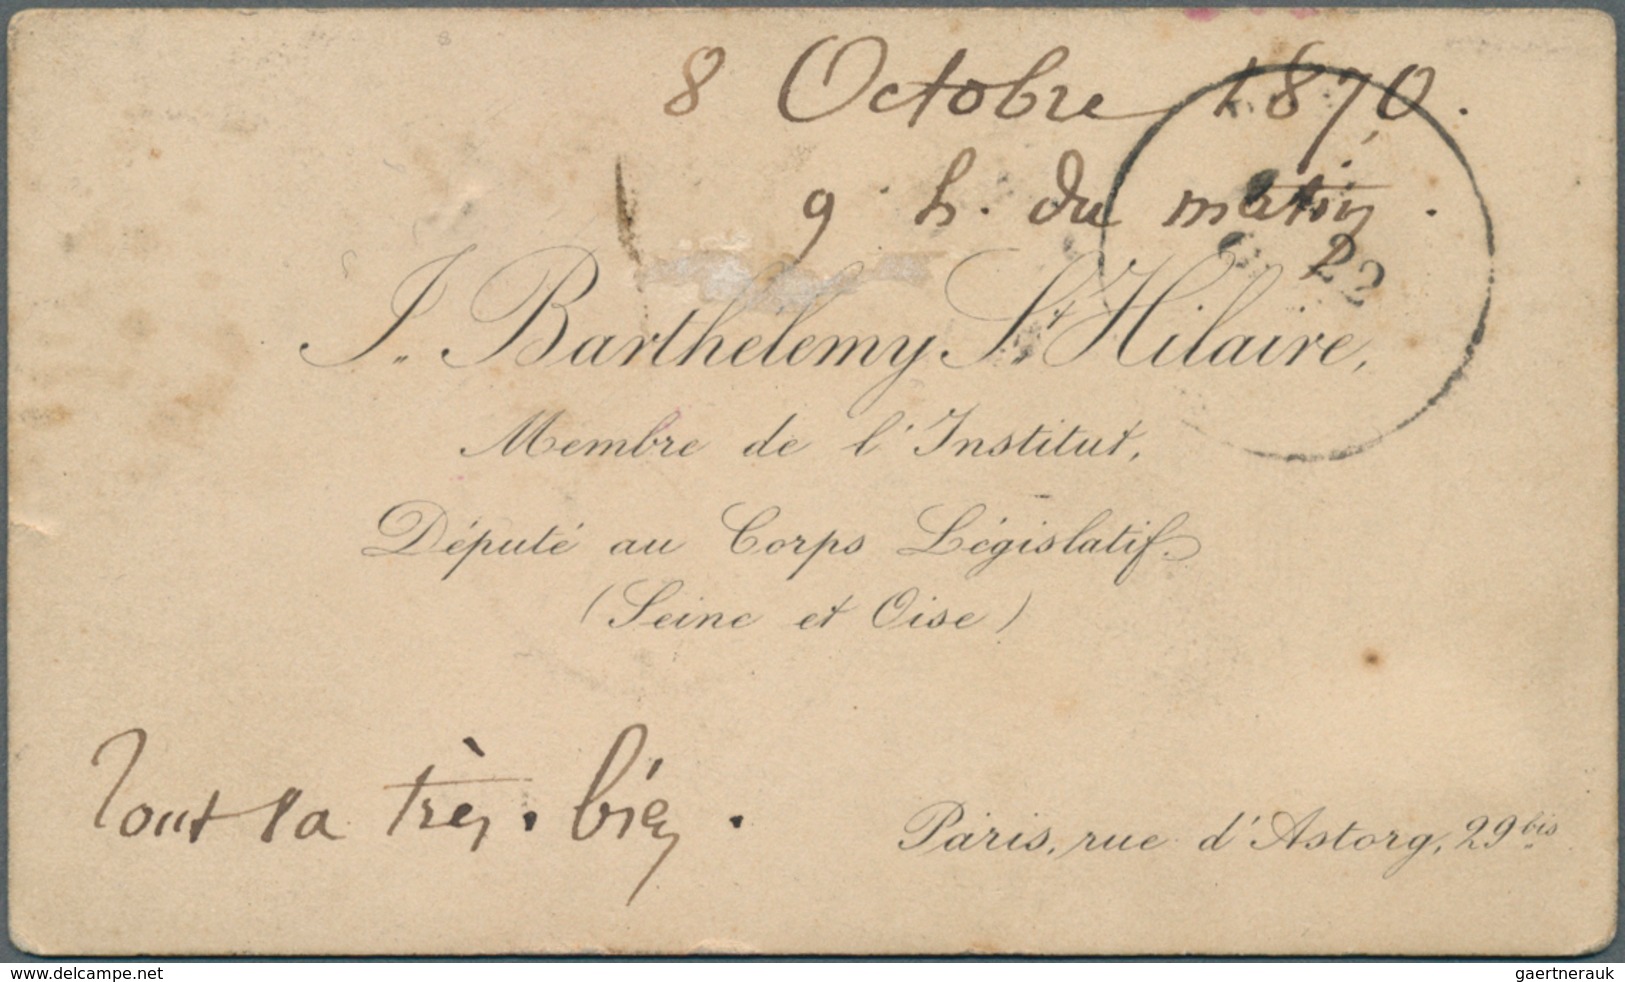 8 Octobre 1870.
9 h. du matin.
22
J. Barthelemy St. Hilaire,
Membre de l'Institut,
Député au Corps Législatif.
(Seine et Oise)
Tout va très-bien.
Paris, rue d'Astorg, 29 bis.
www.delcampe.net
gaertnerauk